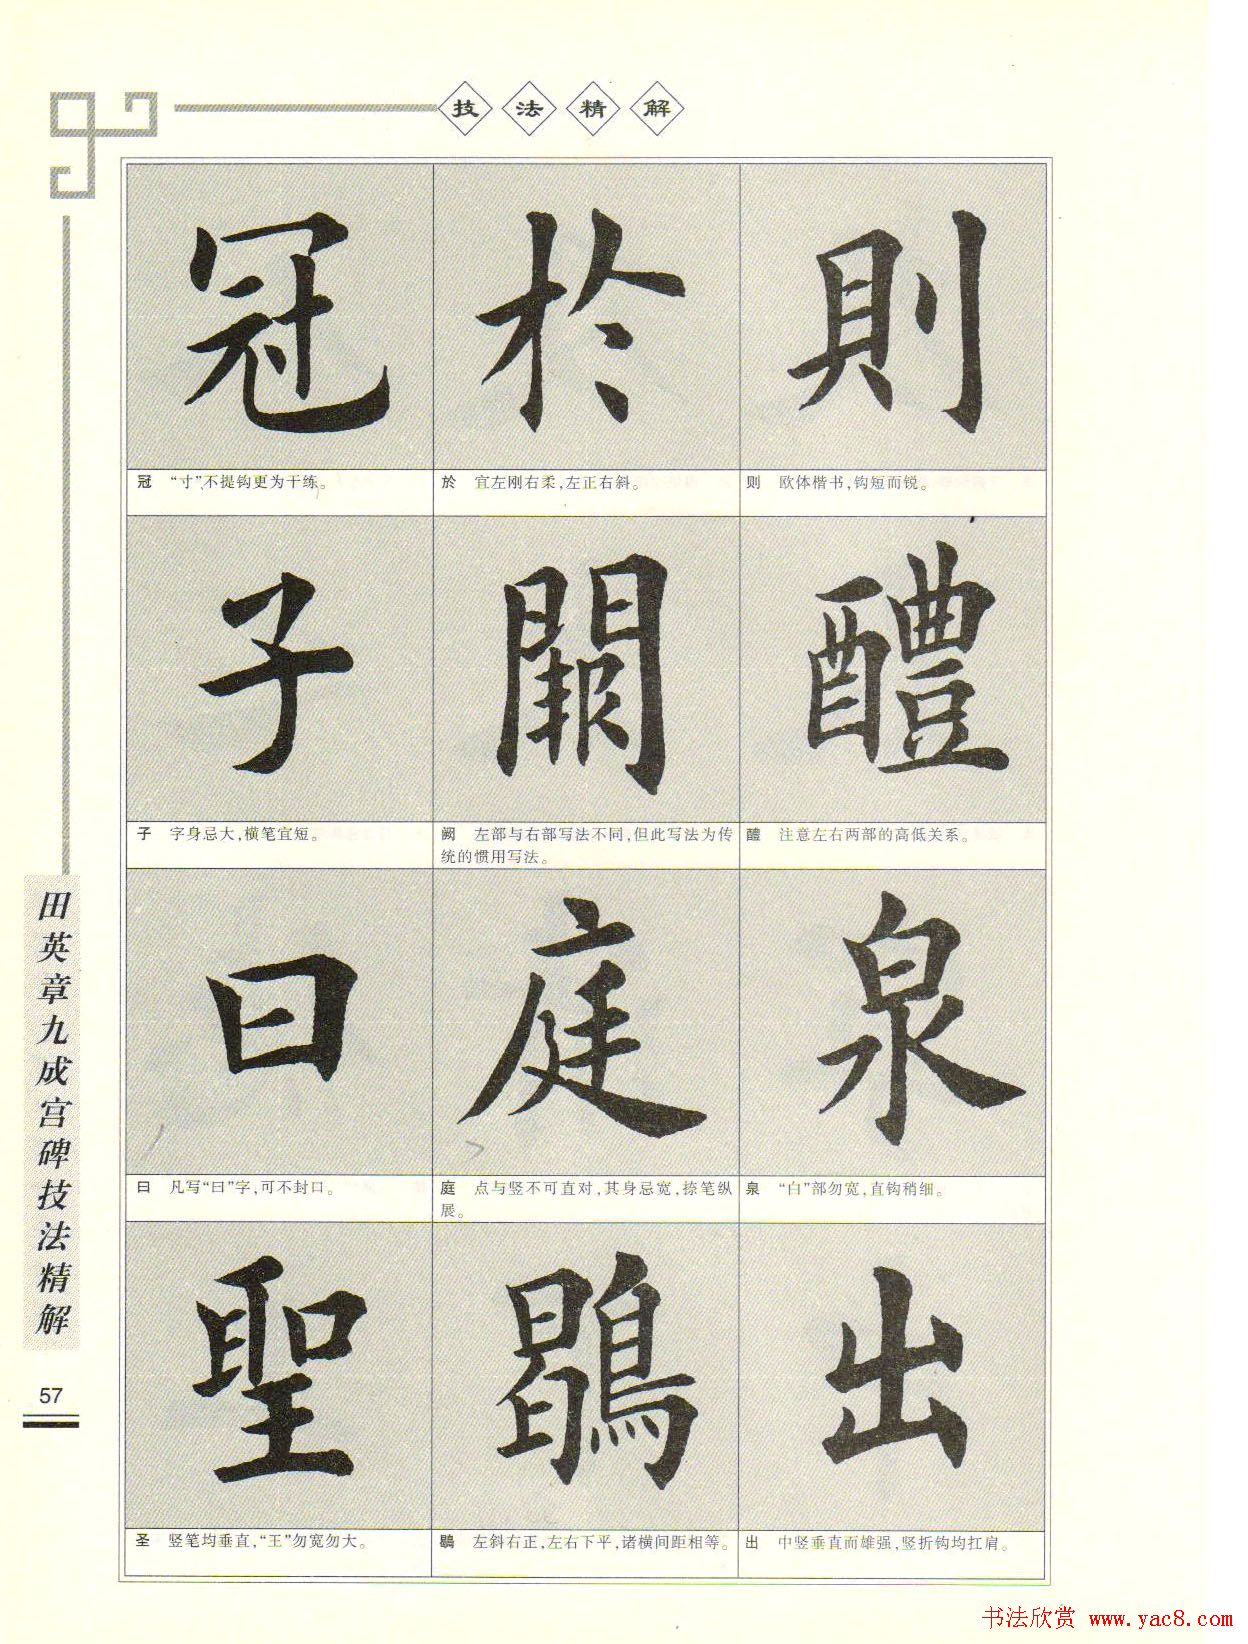 技法精解
冠 於 則
冠 “寸”不提钩更为干练。
於 宜左刚右柔,左正右斜。
则 欧体楷书,钩短而锐。
子 闕 醴
子 字身忌大,横笔宜短。
阙 左部与右部写法不同,但此写法为传
统的惯用写法。
醴 注意左右两部的高低关系。
曰 庭 泉
曰 凡写“曰”字,可不封口。
庭 点与竖不可直对,其身忌宽,捺笔纵
展。
泉 “白”部勿宽,直钩稍细。
聖 鶡 出
圣 竖笔均垂直,“王”勿宽勿大。
鶡 左斜右正,左右下平,诸横间距相等。
出 中竖垂直而雄强,竖折钩均扛肩。
田英章九成宫碑技法精解
57
书法欣赏 www.yac8.com